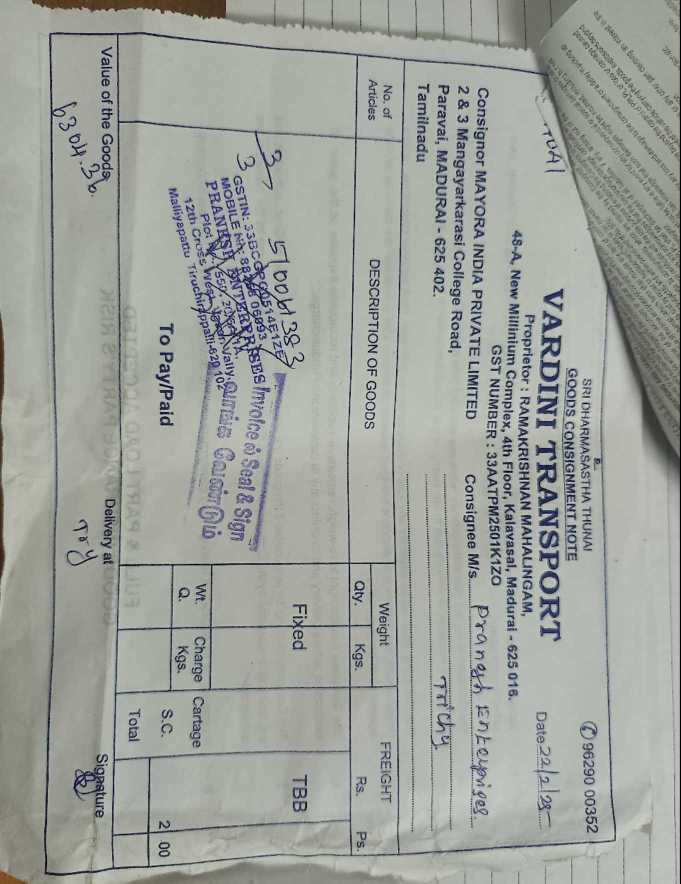 SRI DHARMASASTHA THUNAI
GOODS CONSIGNMENT NOTE
✆ 96290 00352
VARDINI TRANSPORT
Proprietor : RAMAKRISHNAN MAHALINGAM,
48-A, New Millinium Complex, 4th Floor, Kalavasal, Madurai - 625 016.
GST NUMBER : 33AATPM2501K1ZO
Date 22/2/25
Consignor MAYORA INDIA PRIVATE LIMITED
2 & 3 Mangayarkarasi College Road,
Paravai, MADURAI - 625 402.
Tamilnadu
Consignee M/s. Pranesh Enterprises
Trichy
No. of Articles
DESCRIPTION OF GOODS
Weight
Qty.
Kgs.
FREIGHT
Rs.
Ps.
Fixed
TBB
GSTIN:
MOBILE
PRANESH ENTERPRISES
12th Cross West
Malliyapattu Tiruchirappalli-620 102
Invoice ல் Seal & Sign
வாங்க வேண்டும்
To Pay/Paid
Wt. Q.
Charge Kgs.
Cartage
S.C.
2 00
Total
Value of the Goods
6304.36.
Delivery at
Try
Signature